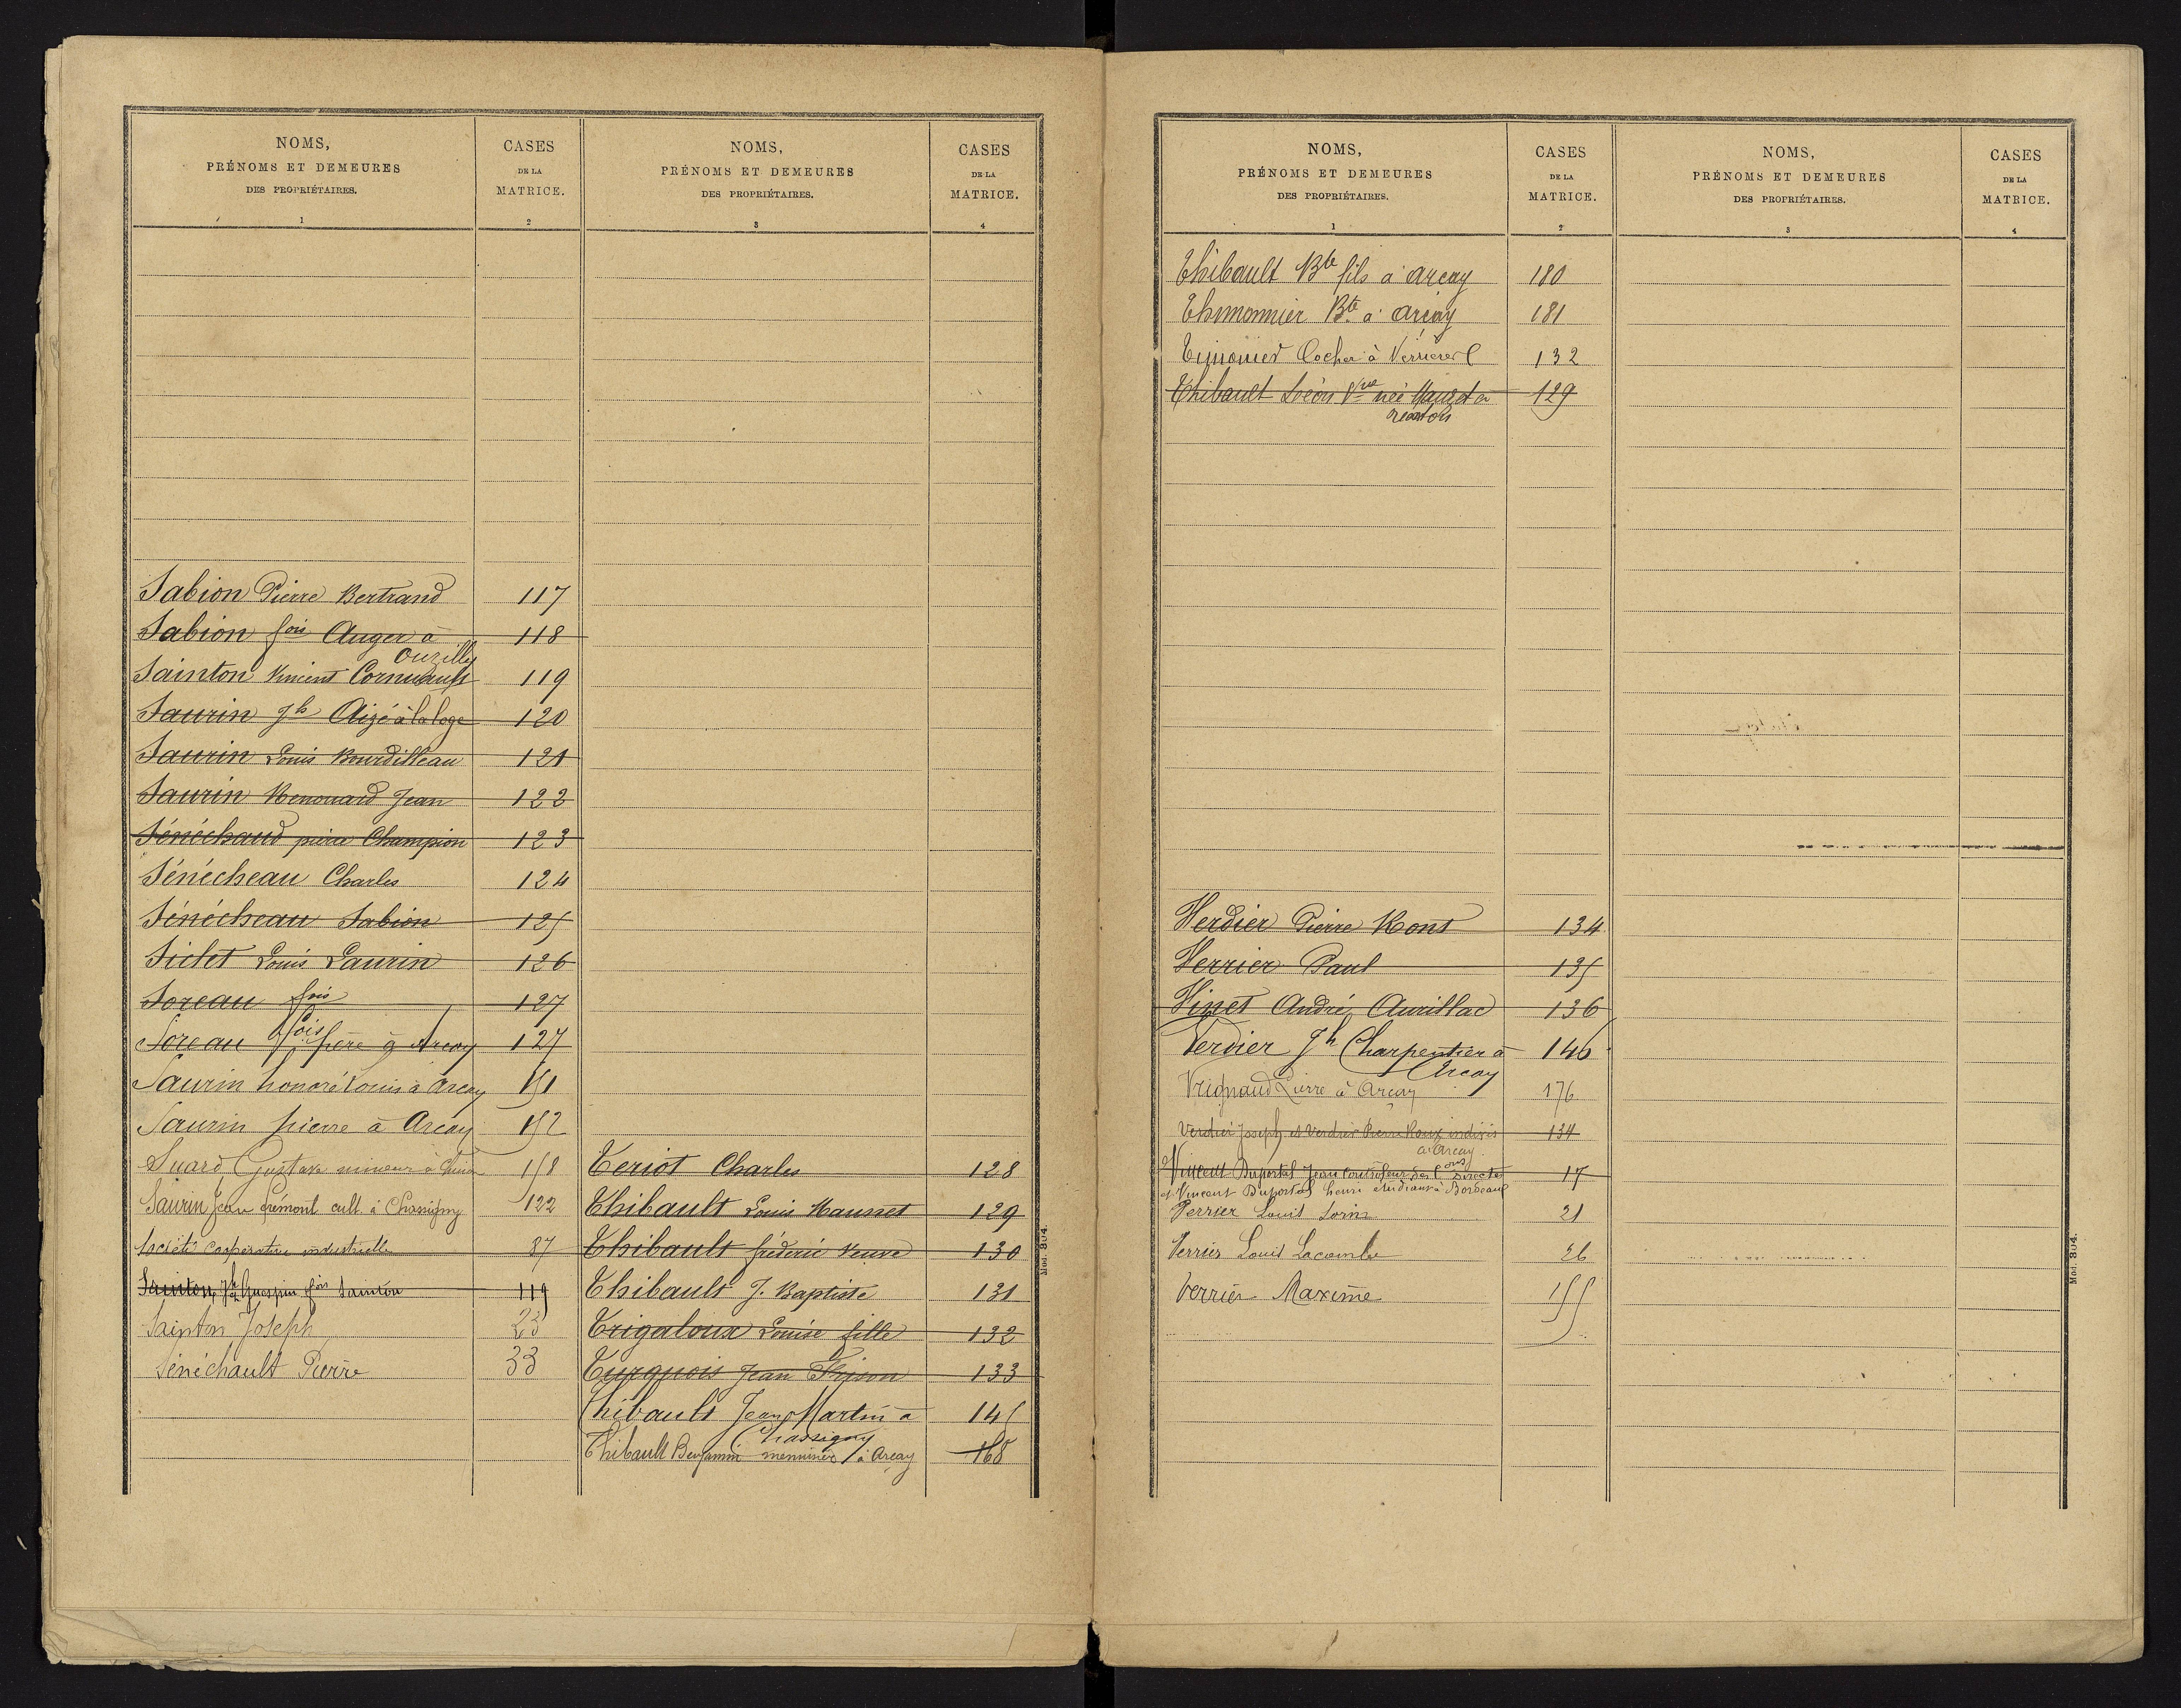 NOMS,
PRÉNOMS ET DEMEURES
DES PROPRIÉTAIRES.
1
CASES
DE LA
MATRICE.
2
Sabion Pierre Bertrand 117
Sabion fois Auger à 118
Ouzilly
Sainton Vincent Cornuault 119
Saurin Jh Aizé à la loge 120
Saurin Louis Bourdilleau 121
Saurin Renouard Jean 122
Sénéchaud pierre Champion 123
Sénécheau Charles 124
Sénécheau Sabion 125
Siclet Louis Laurin 126
Soreau fois 127
Soreau fois père à Arçay 127
Saurin honoré Louis à Arçay 151
Saurin pierre à Arçay 152
Suard Gustave mineur à 158
Saurin Jean frémont cult. à Chassigny 122
Société Coopérative industrielle 87
Sainton Jh Guespin fois Sainton 119
Sainton Joseph 23
Sénéchault Pierre 33
NOMS,
PRÉNOMS ET DEMEURES
DES PROPRIÉTAIRES.
3
CASES
DE LA
MATRICE.
4
Teriot Charles 128
Thibault Louis Mausset 129
Thibault fréderic veuve 130
Thibault J. Baptiste 131
Trigaloux Louise fille 132
Turquois Jean Frison 133
Thibault Jean Martin à 145
Chassigny
Thibault Benjamin menuisier à Arçay 168
Mod. 304.
NOMS,
PRÉNOMS ET DEMEURES
DES PROPRIÉTAIRES.
1
CASES
DE LA
MATRICE.
2
Thibault Bte fils à arcay 180
Thimonnier Bte à arçay 181
Timonier Cocher à 132
Thibault Léon Vve née Mauzet à 129
Verdier Pierre Mont 134
Verrier Paul 135
Vinet André Aurillac 136
Verdier Jh Charpentier à 146
Arcay
Vrignaud Pierre à Arçay 176
Verdier Joseph et Verdier Pierre Roux indivis 134
à Arcay.
Vincent Duportal Jean Controleur des Cons Directes 17
et Vincent Duportal henri etudiant à Bordeaux
Verrier Louis Lorin 21
Verrier Louis Lacombe 26
Verrier Maxime 155
NOMS,
PRÉNOMS ET DEMEURES
DES PROPRIÉTAIRES.
3
CASES
DE LA
MATRICE.
4
Mod. 304.